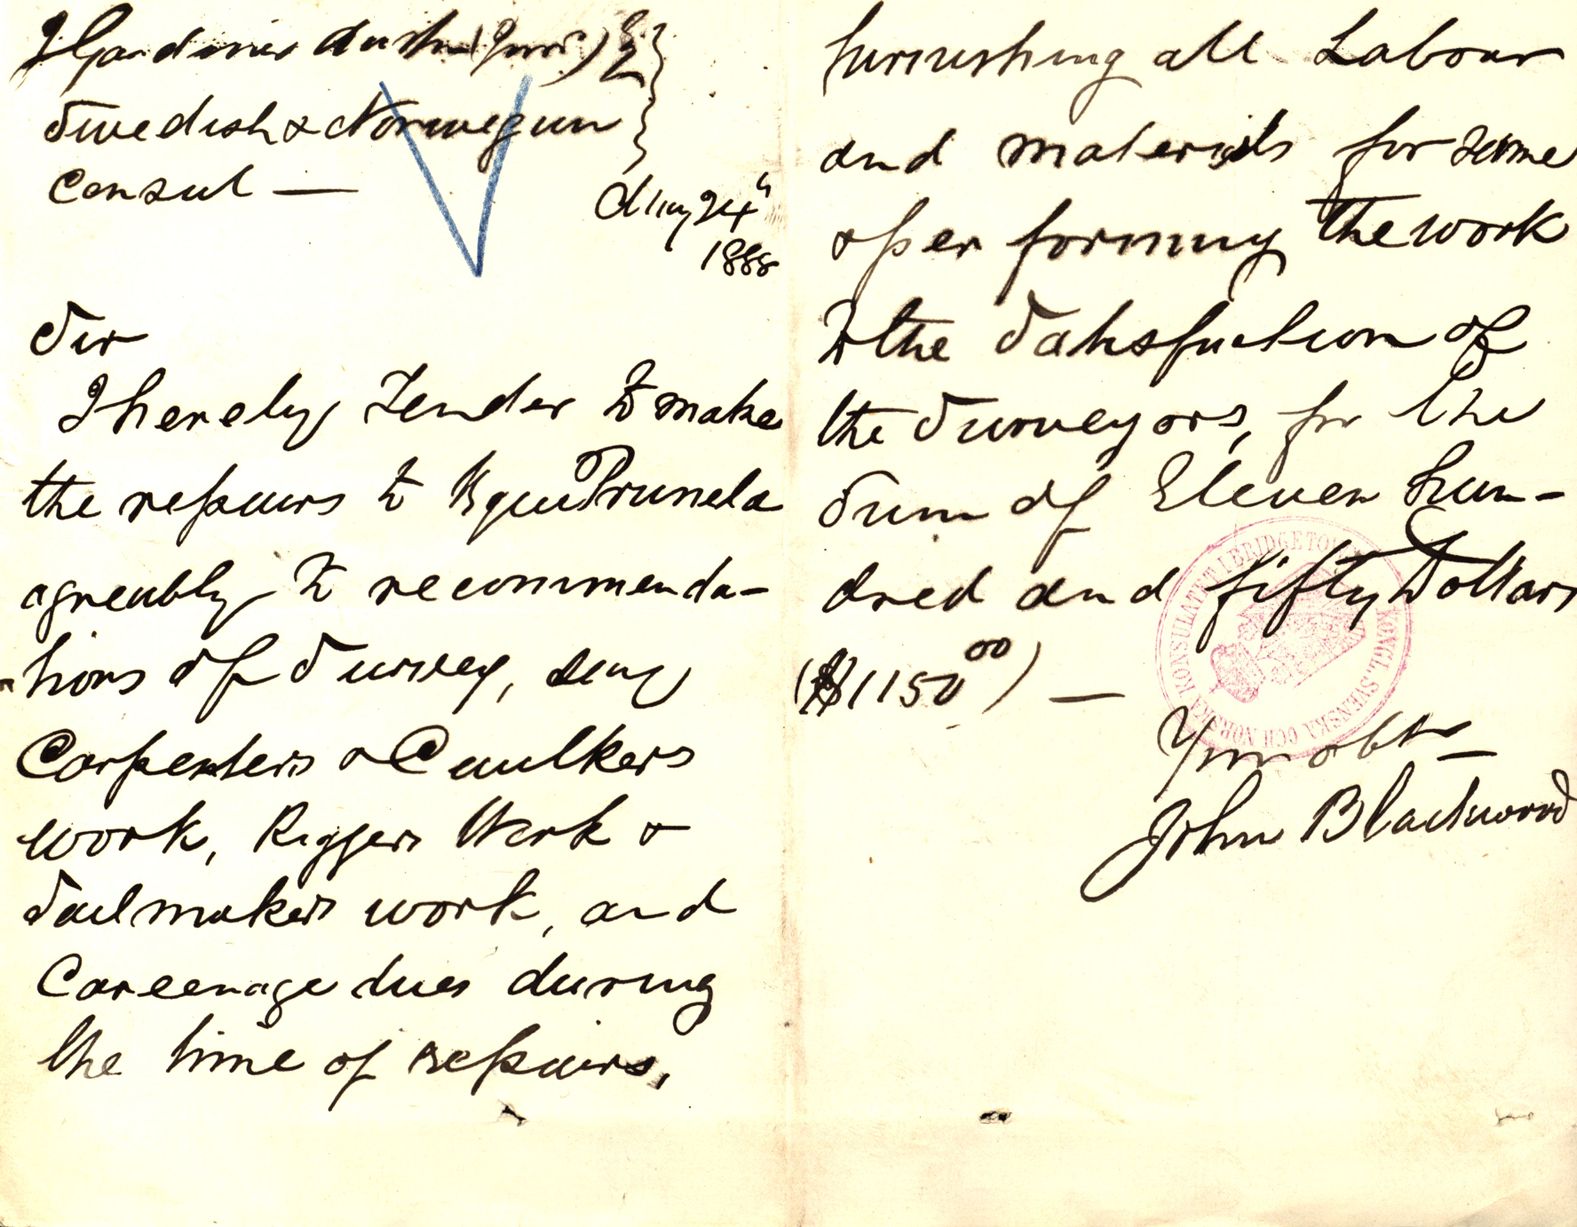 J Gardiner Austin (Junr)
Swedish & Norwegian
Consul —
May 24"
1888
Sir
I hereby Tender to make
the repairs to Bque Prunela
agreably to recommenda-
-tions of Survey, say
Carpenters & Caulkers
work, Riggers Work &
Sailmakers work, and
Careenage dues during
the time of repairs,
furnishing all Labour
and materials for same
& performing the work
to the Satisfaction of
the Surveyors, for the
Sum of Eleven hun-
dred and fifty Dollars
($1150 00) —
Your obt
John Blackwood
KONGL. SVENSKA OCH NORSKA KONSULATET I BRIDGETOWN